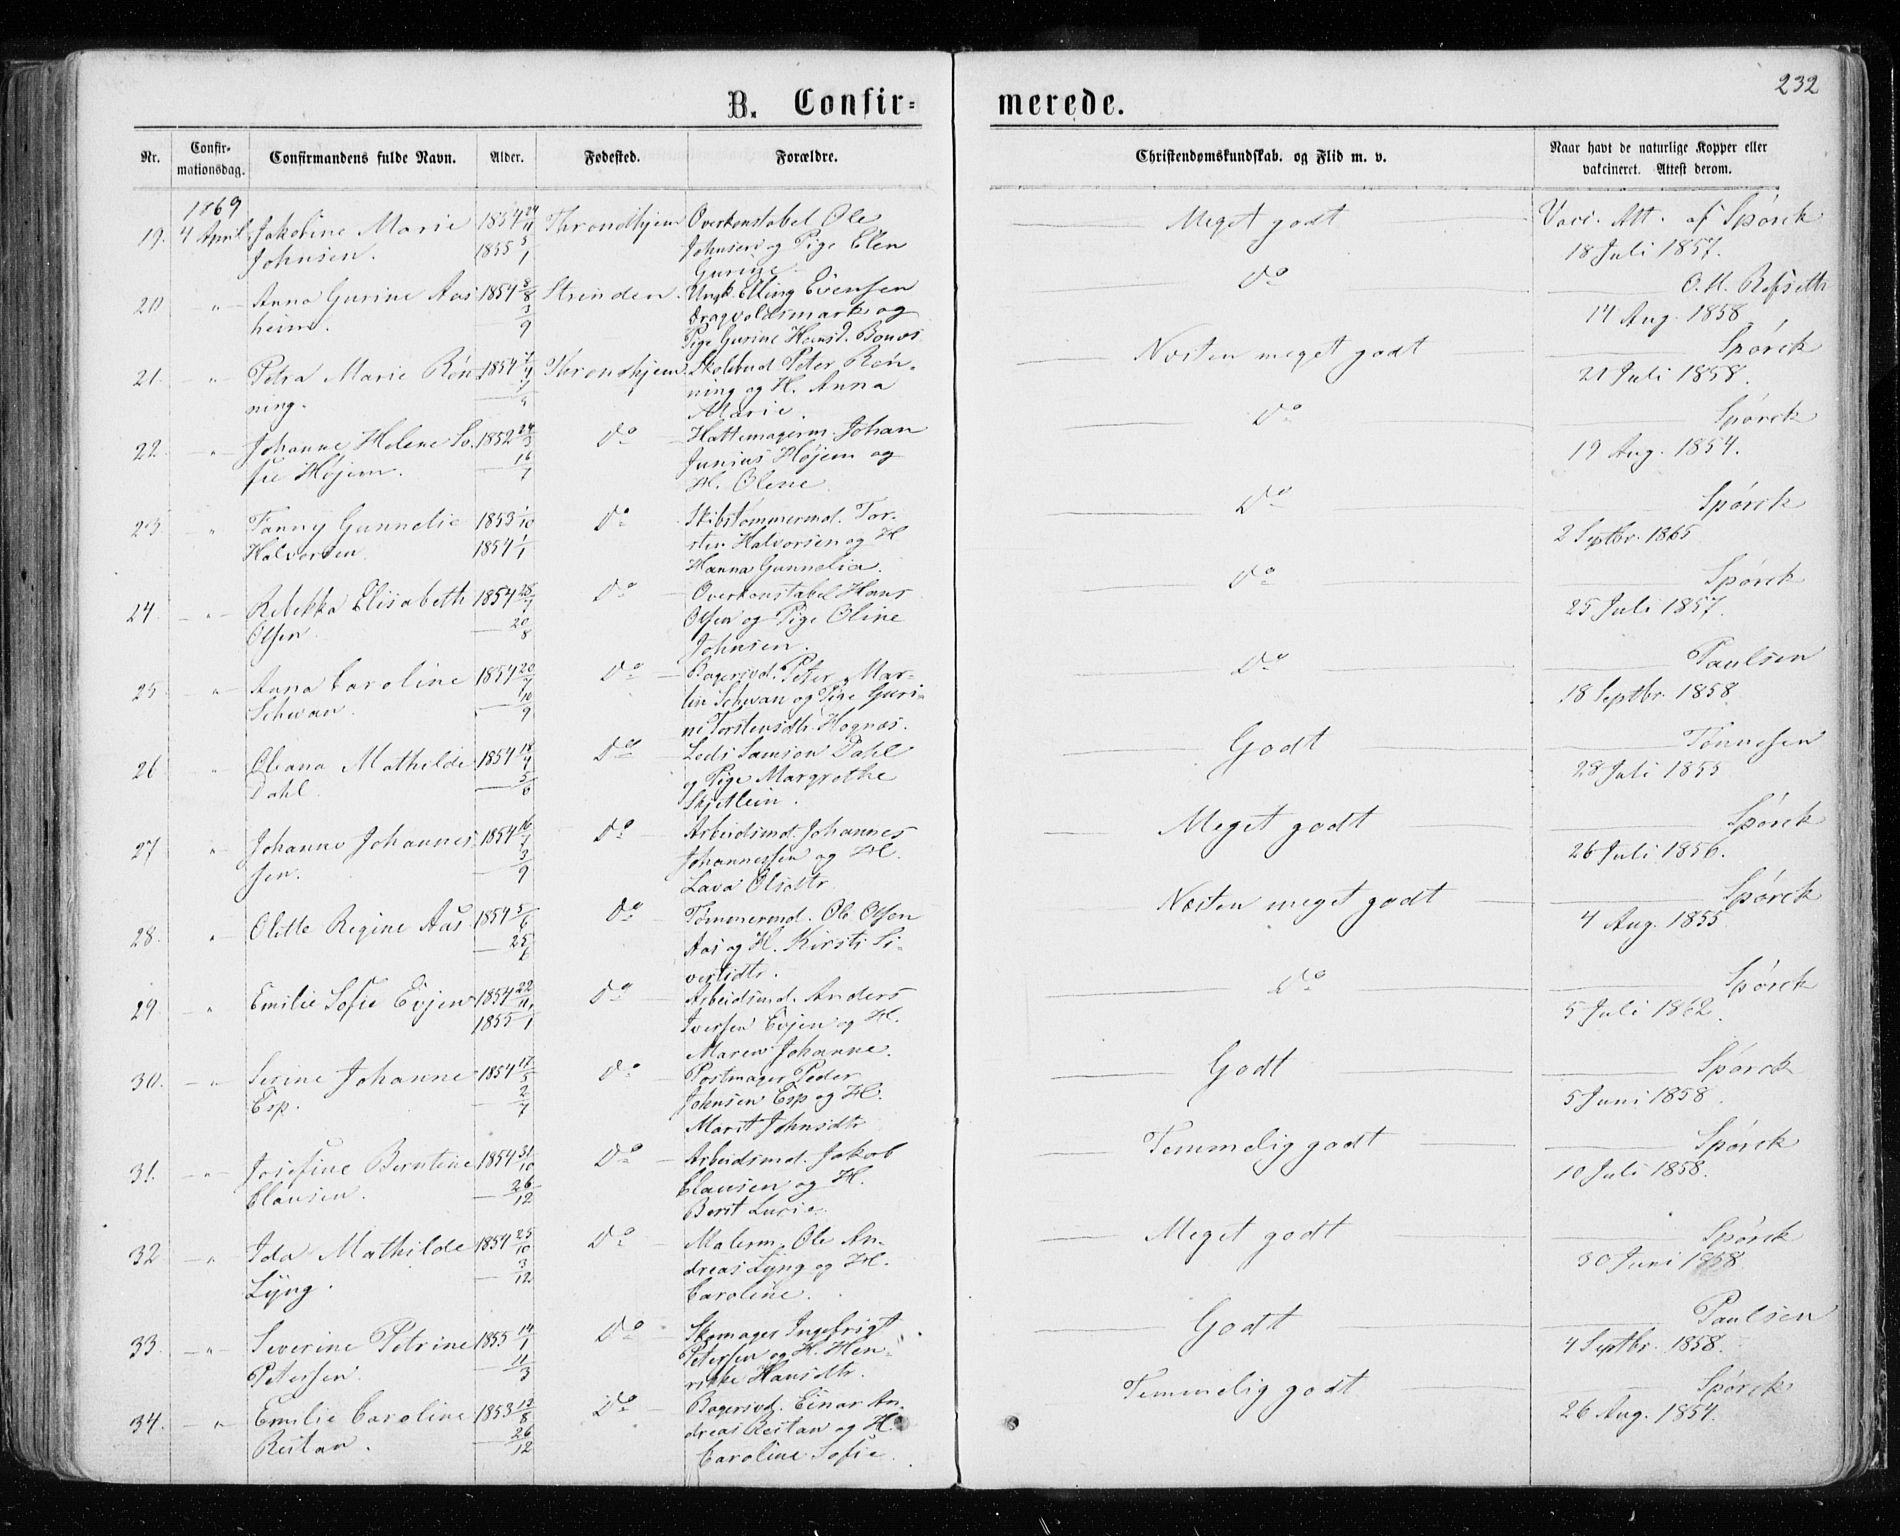 232
B. Confir= merede.
Nr. Confir-mationsdag. Confirmandens fulde Navn. Alder. Fødested. Forældre. Christendomskundskab. og Flid m. v. Naar havt de naturlige Kopper eller vakcineret. Attest derom.
1869
19. 4 April Jakobine Marie 1854 24/11 Throndhjem Overkonstabel Ole Meget godt Vacc. Att. af Spörck
Johnsen. 1855 5/1 Johnsen og Pige Elen 18 Juli 1857.
Gurine.
20 " Anna Gurine Aas 1854 3/8 Strinden. Ungk. Elling Evensen Do O. M. Refseth
heim. 3/9 Dragvoldsmark og 14 Aug. 1858
Pige Gurine Hansd. Bonæs
21. " Petra Marie Rön Throndhjem Skolebud Peter Rön- Næsten meget godt Spörck
ning. ning og H. Anna 21 Juli 1858.
Marie.
22 " Johanne Helene So 1852 24/3 Do Hattemagerm. Johan Do Spörck
fie Höjem. 16/7 Junius Höjem og 19 Aug. 1854.
H. Oline
23 " Fanny Gunnelie 1853 1/10 Do Skibstömmermd. Tor- Do Spörck
Halvorsen 1854 1/1 sten Halvorsen og H 2 Septbr. 1865
Hanna Gunnelia.
24. " Rebekka Elisabeth 1854 28/7 Do Overkonstabel Hans Do Spörck
Olsen. 20/8 Olsen og Pige Oline 25 Juli 1857.
Johnsen.
25 " Anna Caroline 1854 20/7 Do Bagersvd. Peter Mar- Do Paulsen
Schwan. 10/9 tin Schwan og Pige Guri- 18 Septbr. 1858.
ne Torstensdtr. Hognæs.
26 " Oleana Mathilde 1854 18/4 Do Leds Samson Dahl Godt Tönnesen
Dahl. 5/6 og Pige Margrethe 28 Juli 1855
Skjetlein.
27 " Johanne Johannes 1854 16/7 Do Arbeidsmd. Johannes Meget godt Spörck
sen. 3/9 Johannessen og H. 26 Juli 1856.
Lava Olsdtr.
28. " Olette Regine Aas 1854 5/6 Do Tömmermd. Ole Olsen Næsten meget godt Spörck
25/6 Aas og H. Kirsti Si- 4 Aug. 1855
vertsdtr.
29. " Emilie Sofie Evjen 1854 22/11 Do Arbeidsmd. Anders Do Spörck
1855 /1 Iversen Evjen og H. 5 Juli 1862.
Maren Johanne.
30. " Serine Johanne 1854 17/5 Do Postmager Peder Godt Spörck
Esp. 2/7 Johnsen Esp og H. 5 Juni 1858.
Marit Johnsdtr
31. " Josefine Berntine 1854 31/10 Do Arbeidsmd. Jakob Temmelig godt Spörck
Clausen. 26/12 Clausen og H. 10 Juli 1858.
Berit Lucie.
32 " Ida Mathilde 1854 25/10 Do Malerm. Ole An- Meget godt Spörck
Lyng. 3/12 dreas Lyng og H. 30 Juni 1858
Caroline.
33. " Severine Petrine 1855 14/1 Do Skomager Ingebrigt Godt Paulsen
Petersen. 11/3 Petersen og H. Hen- 4 Septbr. 1858.
rikke Hansdtr.
34. " Emilie Caroline 1853 12/8 Do Bagersvd. Einar An- Temmelig godt Spörck
Reitan. 26/12 dreas Reitan og H. 26 Aug. 1854.
Caroline Sofie.